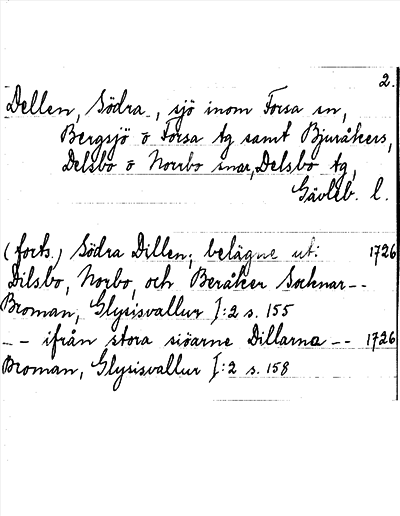 2.
Dellen, Södra, sjö inom Forsa sn,
Bergsjö o Forsa tg samt Bjuråkers,
Delsbo o Norrbo snar, Delsbo tg,
Gävleb. l.
(forts.) Södra Dillen; belägne uti 1726
Dilsbo, Norbo, och Beråker Socknar--
Broman, Glysisvallur I:2 s. 155
-- ifrån stora siöarne Dillarna -- 1726
Broman, Glysisvallur I:2 s. 158